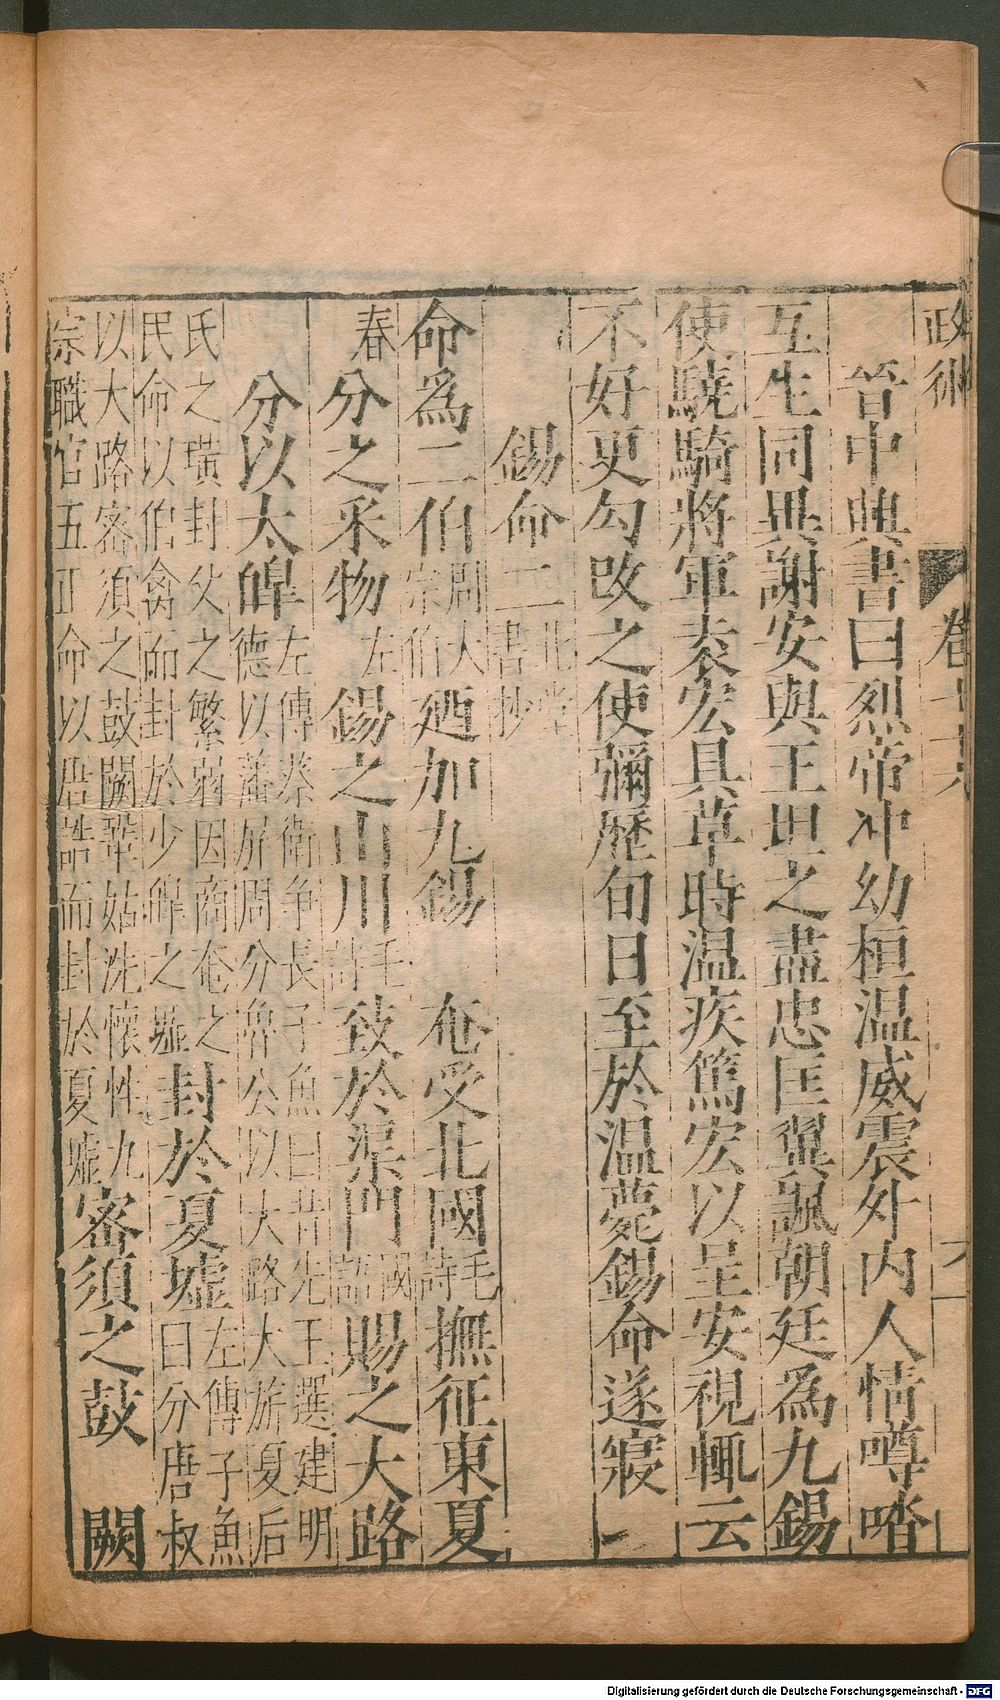 政術 卷十六
晉中興書曰烈帝冲幼桓温威震外内人情噂喒
互生同異謝安與王坦之盡忠匡翼諷朝廷為九錫
使驍騎將軍袁宏具草時温疾篤宏以呈安視輒云
不好更勾改之使彌歷旬日至於温薨錫命遂寢
錫命二北堂書抄
命為二伯周大宗伯 廼加九錫 奄受北國毛詩 撫征東夏
春分之采物左 錫之山川毛詩 致於渠門國語 賜之大路
分以太皥左傳蔡衛争長子魚曰昔先王選建明德以藩屏周分魯公以大路大旂夏后
氏之璜封父之繁弱因商奄之民命以伯禽而封於少皥之墟 封於夏墟左傳子魚曰分唐叔
以大路密須之鼓闕鞏姑洗懷性九宗職官五正命以唐誥而封於夏墟 密須之鼓 闕
Digitalisierung gefördert durch die Deutsche Forschungsgemeinschaft - DFG